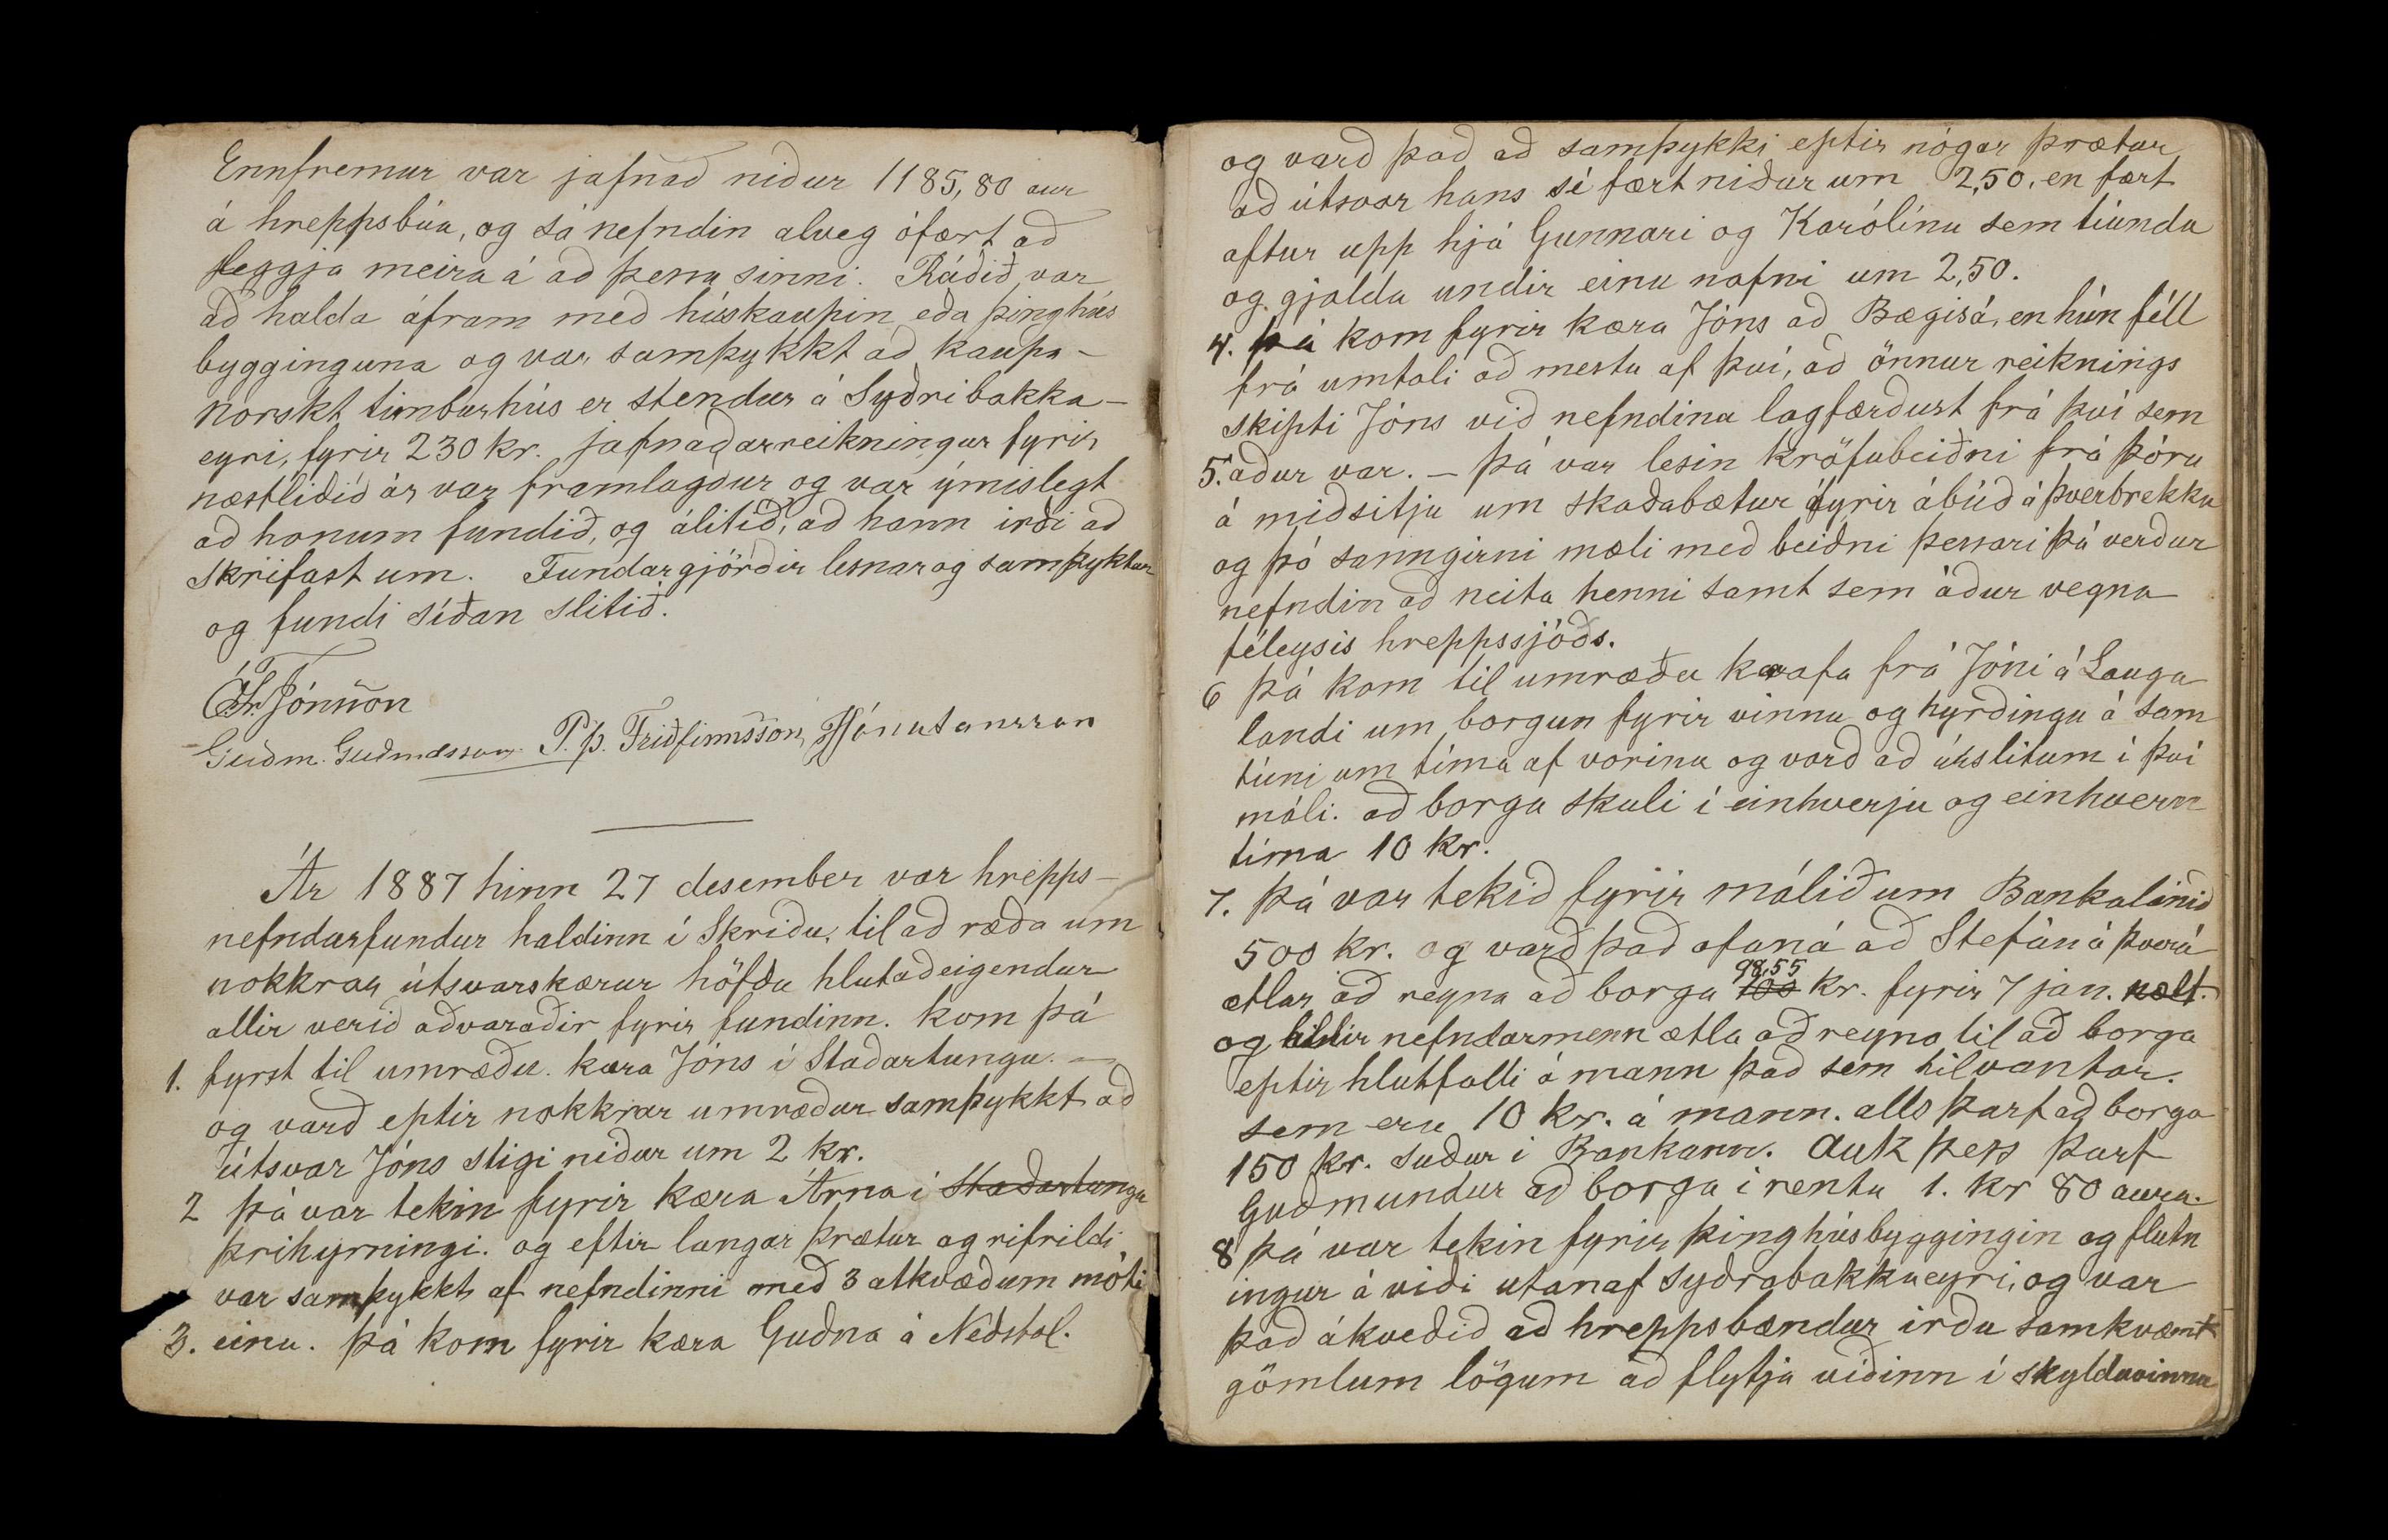 Ennfremur var jafnað niður 1185,80 aur
á hreppsbúa, og sá nefndin alveg ófært að
leggja meira á að þessu sinni. Ráðið var
að halda áfram með húskaupin eða þinghús
bygginguna og var samþykkt að kaupa-
norskt timburhús er stendur á Syðribakka-
eyri, fyrir 230 kr. jafnaðarreikningur fyrir
næstliðið ár var framlagður og var ýmislegt
að honum fundið, og álitið, að hann irði að
skrifast um. Fundargjörðir lesnar og samþyktar
og fundi síðan slitið.
Jónsson
Guðm. Guðmdsson. P. Þ. Friðfinnsson, Jónatansson
Ár 1887 hinn 27 desember var hrepps-
nefndarfundur haldinn í Skriðu, til að ræða um
nokkrar útsvarskærur höfðu hlutaðeigendur
allir verið aðvaraðir fyrir fundinn. Kom þá
1. fyrst til umræðu. kæra Jóns í Staðartungu. -
og varð eptir nokkrar umræður samþykkt að
útsvar Jóns stigi niður um 2 kr.
2 Þá var tekin fyrir kæra Árna í Staðartungu
Þríhyrningi. og eftir langar þrætur og rifrildi
var samþykkt af nefndinni með 3 atkvæðum móti
3. einu. Þá kom fyrir kæra Guðna á Neðstal.
og varð það að samþykki eptir nógar þrætur
að útsvar hans sé fært niður um 2,50. en fært
aftur upp hjá Gunnari og Karólínu sem tíunda
og gjalda undir einu nafni um 2,50.
4. Þá kom fyrir kæra Jóns að Bægisá, en hún féll
frá umtali að mestu af því, að önnur reiknings
skipti Jóns við nefndina lagfærðust frá því sem
5. aður var. - Þá var lesin kröfubeiðni frá Þóru
á miðsitju um skaðabætur fyrir ábúð á Þverbrekku
og þó sanngirni mæli með beiðni þessari þá verður
nefndin að neita henni samt sem áður vegna
féleysis hreppssjóðs.
6 Þá kom til umræðu krafa frá Jóni á Lauga
landi um borgun fyrir vinnu og hyrðingu á sam
túni um tíma af vorinu og varð að úrslitum í því
máli. að borga skuli í einhverju og einhvern
tíma 10 kr.
7. Þá var tekið fyrir málið um Bankalánið
500 kr. og varð það ofaná að Stefán á Þverá
98,55
ætlar að reyna að borga 100 kr. fyrir 7 jan. næst.
og hinir nefndarmenn ætla að reyna til að borga
eptir hlutfalli á mann það sem tilvantar.
sem eru 10 kr. á mann. alls þarf að borga
150 kr. suður í Bankann. Auk þess þarf
Guðmundur að borga í rentu 1. kr 80 aura.
8 Þá var tekin fyrir þinghúsbyggingin og flutn
ingur á viði utanaf Syðrabakkaeyri, og var
það ákveðið að hreppsbændur irðu samkvæmt
gömlum lögum að flytja viðinn í skylduvinnu